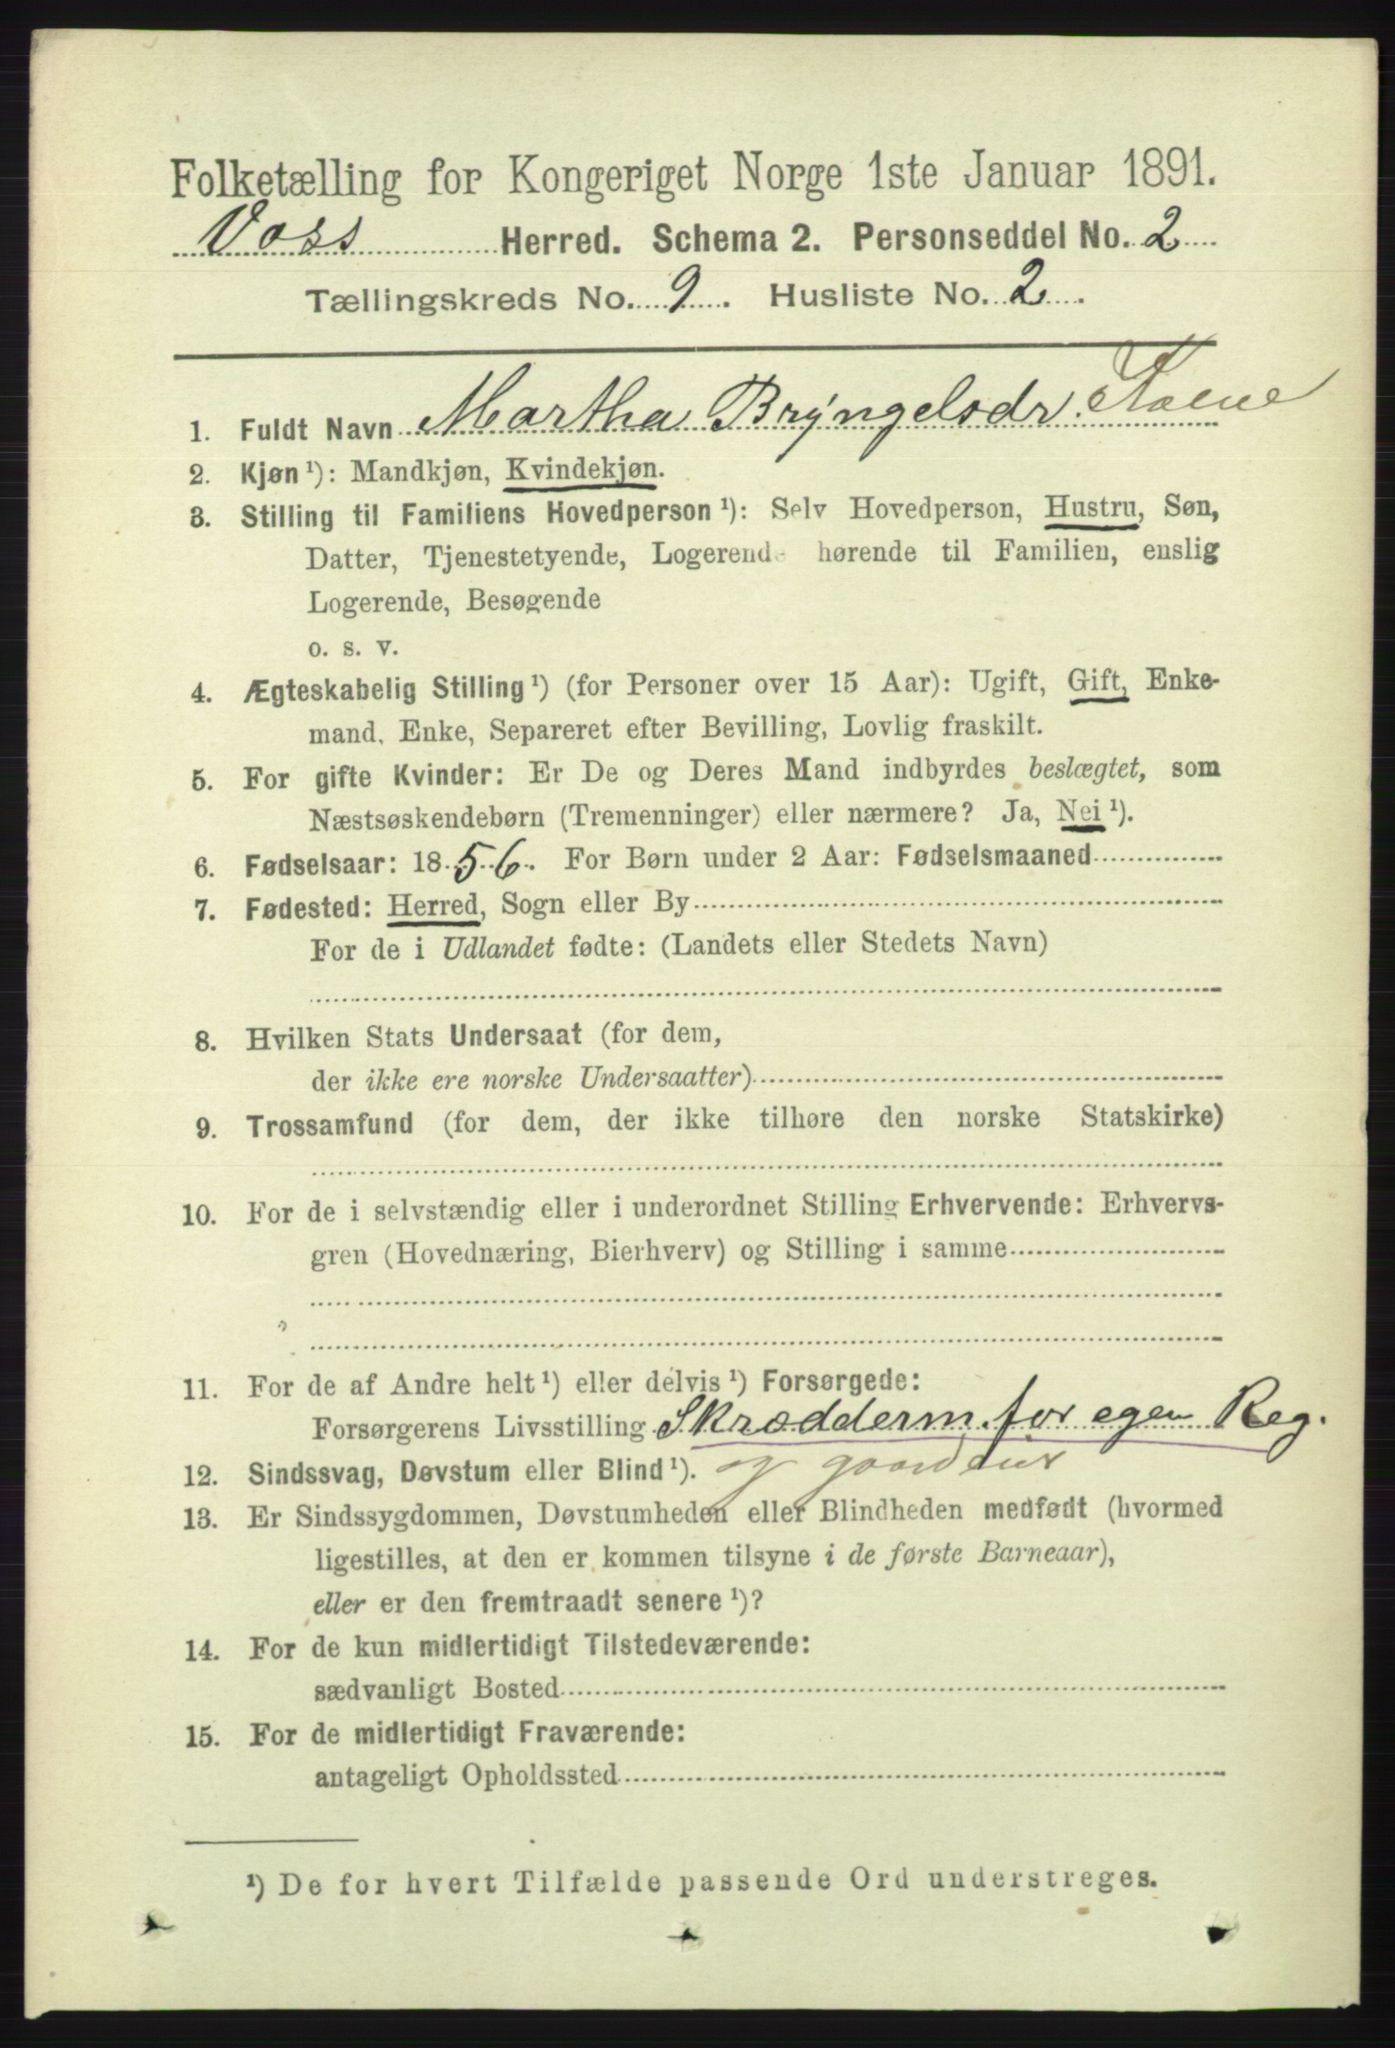 Folketælling for Kongeriget Norge 1ste Januar 1891.
Voss Herred. Schema 2. Personseddel No. 2
Tællingskreds No. 9. Husliste No. 2.
1. Fuldt Navn Martha Brÿngelsdr.
2. Kjøn ¹): Mandkjøn, Kvindekjøn.
3. Stilling til Familiens Hovedperson ¹): Selv Hovedperson, Hustru, Søn,
Datter, Tjenestetyende, Logerende hørende til Familien, enslig
Logerende, Besøgende
o. s. v.
4. Ægteskabelig Stilling ¹) (for Personer over 15 Aar): Ugift, Gift, Enke-
mand, Enke, Separeret efter Bevilling, Lovlig fraskilt.
5. For gifte Kvinder: Er De og Deres Mand indbyrdes beslægtet, som
Næstsøskendebørn (Tremenninger) eller nærmere? Ja, Nei ¹).
6. Fødselsaar: 1856. For Børn under 2 Aar: Fødselsmaaned
7. Fødested: Herred, Sogn eller By
For de i Udlandet fødte: (Landets eller Stedets Navn)
8. Hvilken Stats Undersaat (for dem,
der ikke ere norske Undersaatter)
9. Trossamfund (for dem, der ikke tilhøre den norske Statskirke)
10. For de i selvstændig eller i underordnet Stilling Erhvervende: Erhvervs-
gren (Hovednæring, Bierhverv) og Stilling i samme
11. For de af Andre helt ¹) eller delvis ¹) Forsørgede:
Forsørgerens Livsstilling Skrædderm. for egen Reg.
og
12. Sindssvag, Døvstum eller Blind ¹).
13. Er Sindssygdommen, Døvstumheden eller Blindheden medfødt (hvormed
ligestilles, at den er kommen tilsyne i de første Barneaar),
eller er den fremtraadt senere ¹)?
14. For de kun midlertidigt Tilstedeværende:
sædvanligt Bosted
15. For de midlertidigt Fraværende:
antageligt Opholdssted
¹) De for hvert Tilfælde passende Ord understreges.